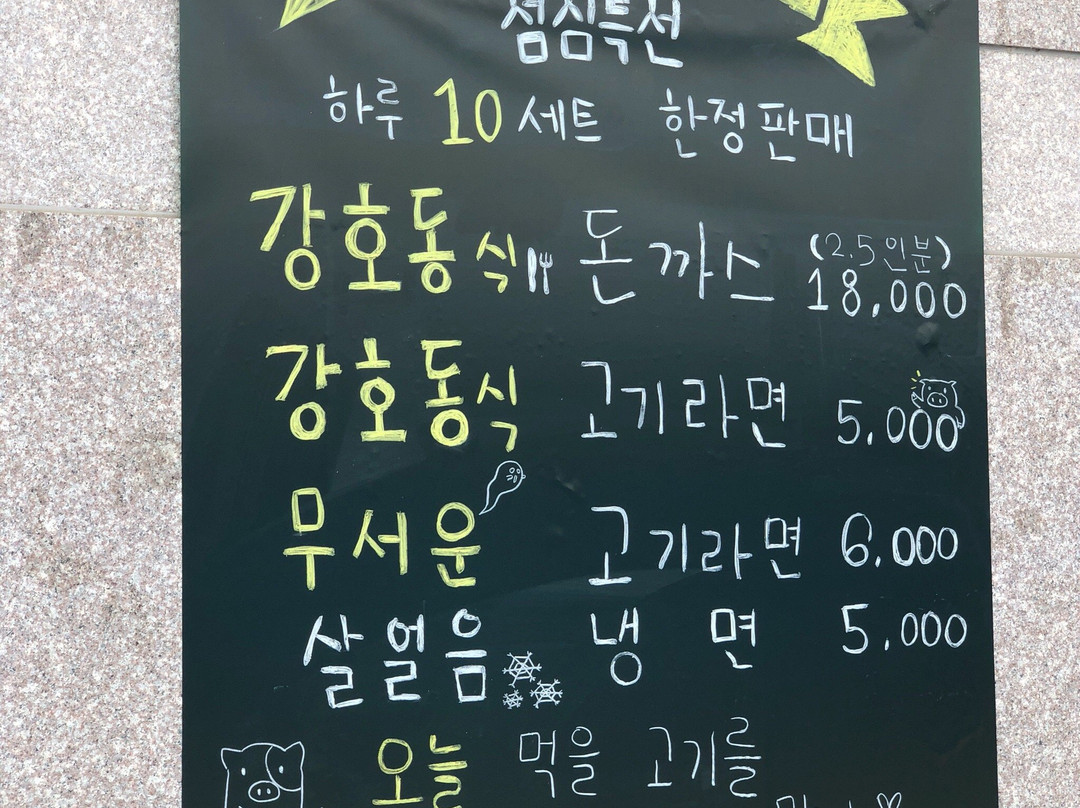 점심특선
하루 10세트 한정판매
강호동식 돈까스 (2.5인분) 18,000
강호동식 고기라면 5.000
무서운 고기라면 6.000
살얼음 냉면 5.000
오늘 먹을 고기를